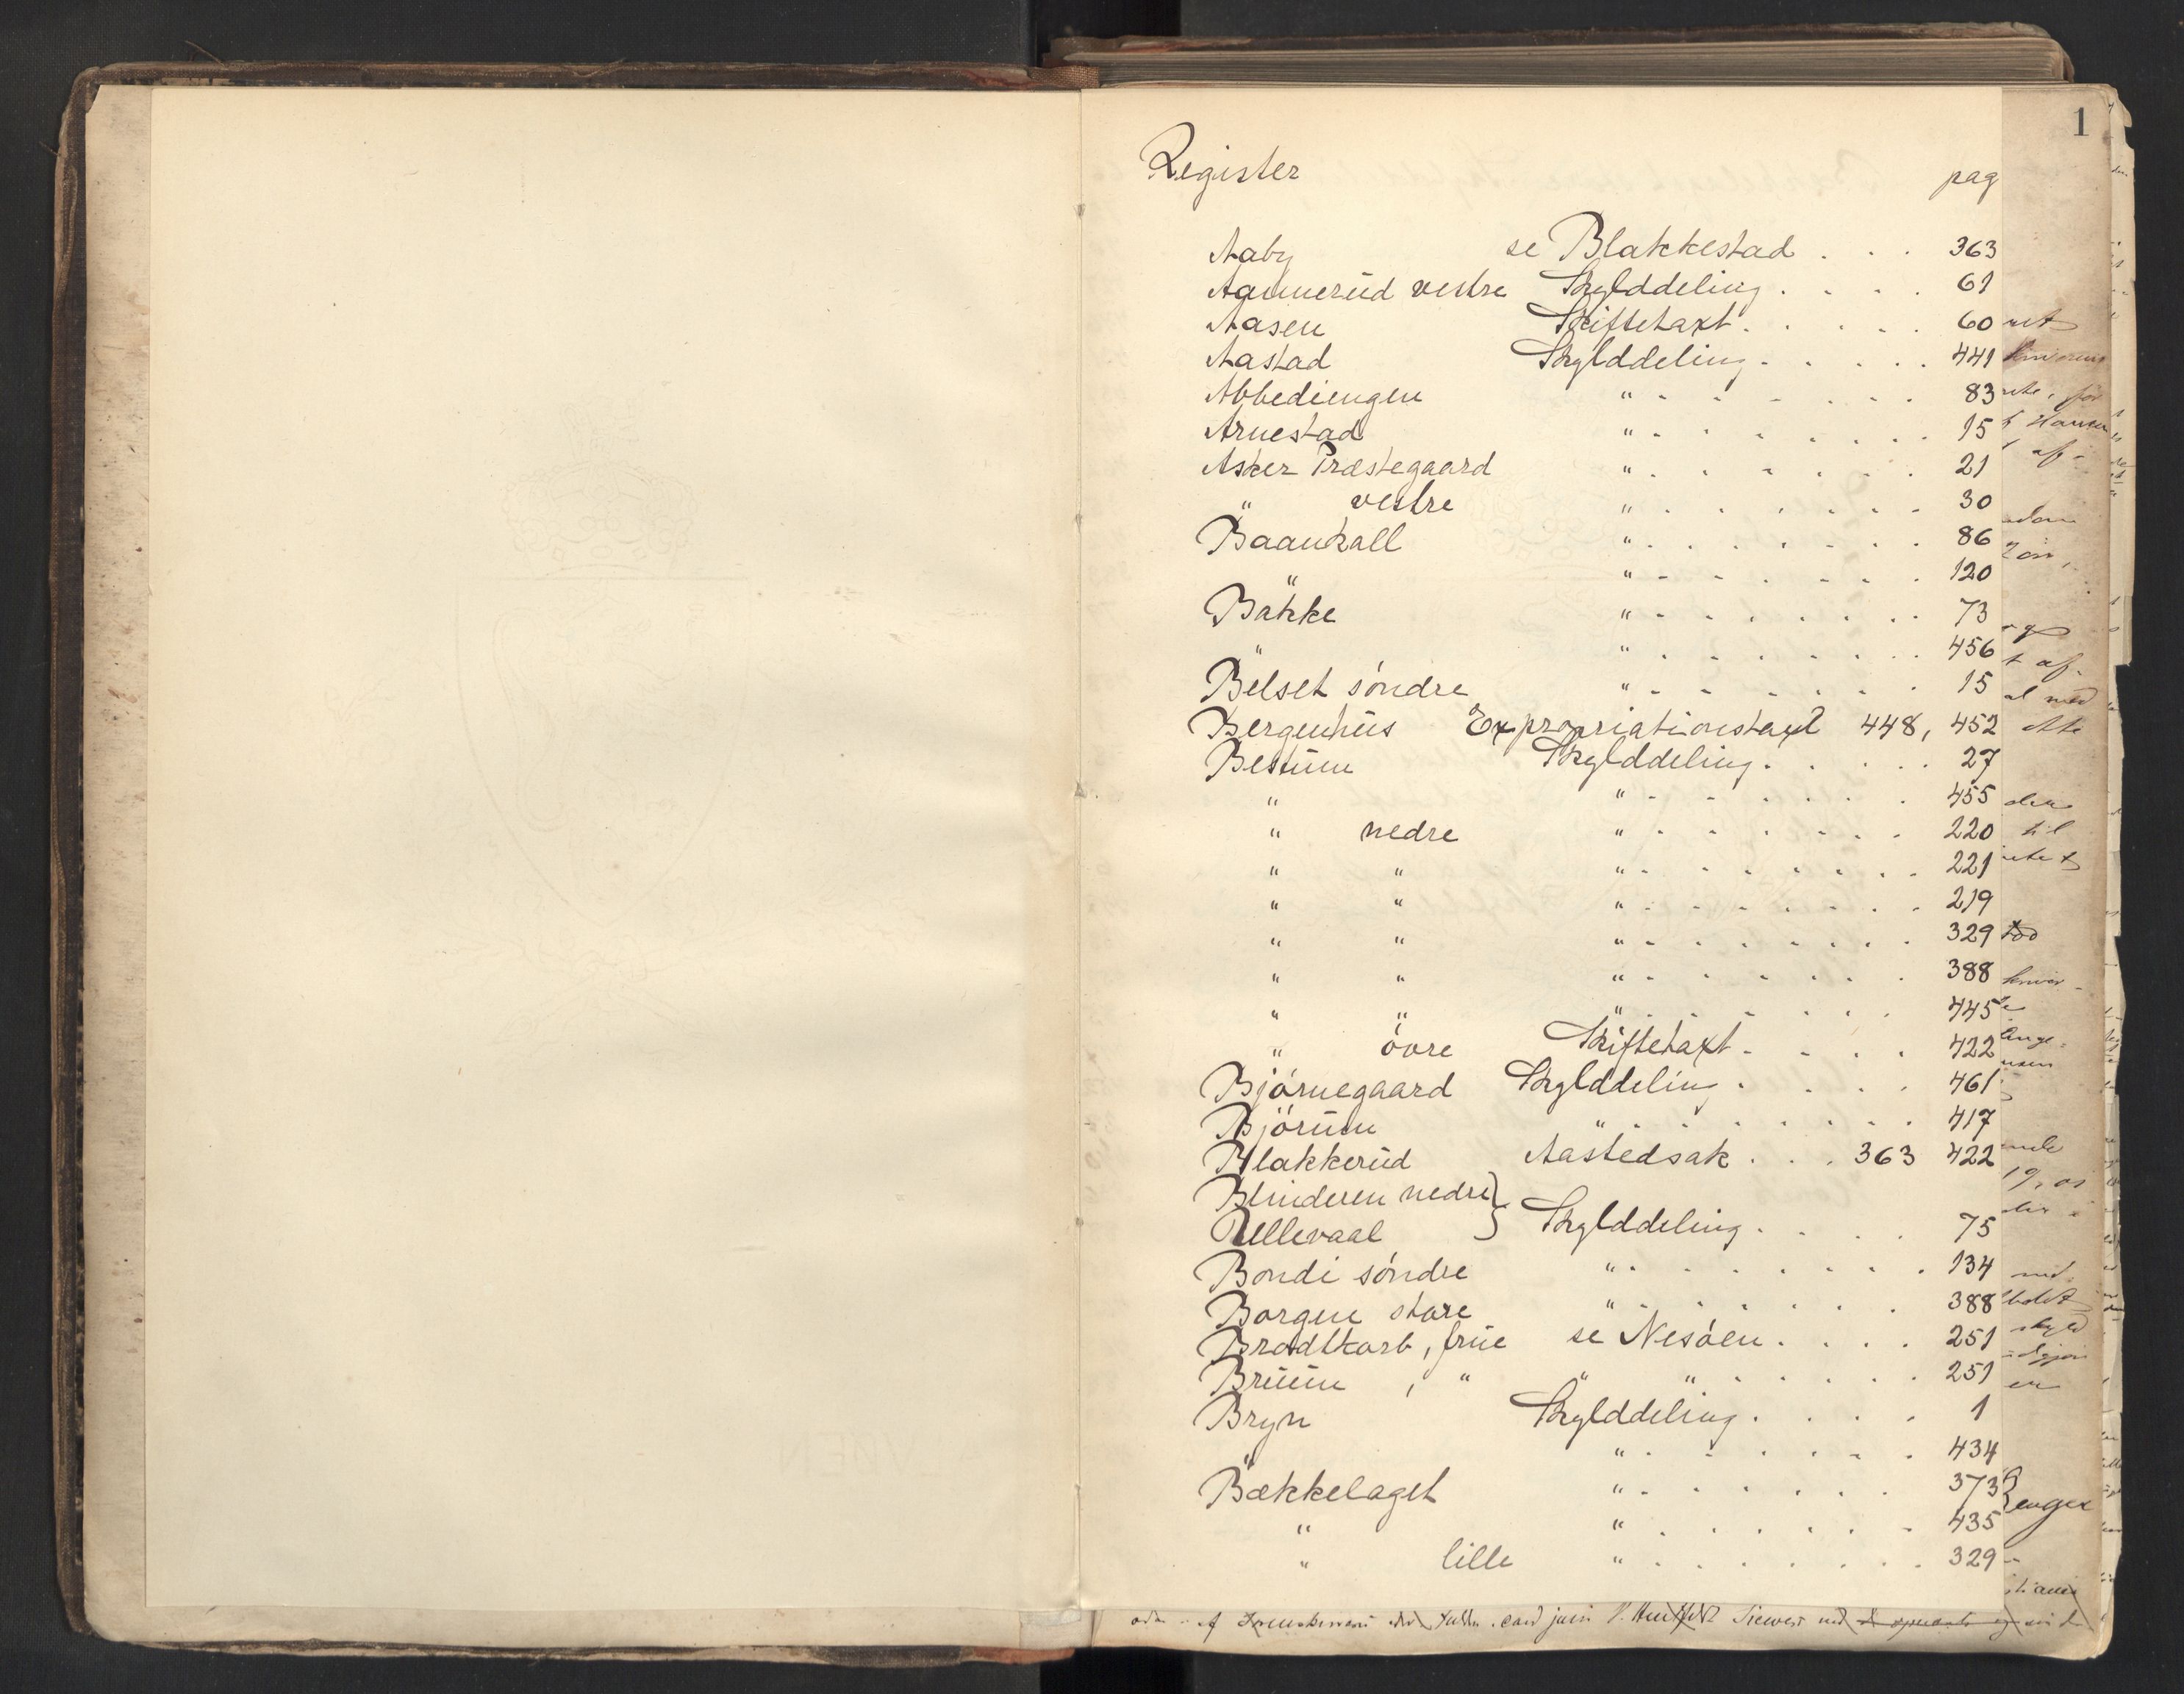 1
Register pag
Aaby se Blakkestad . . . 363
Aamerud vestre Skylddeling . . . . 61
Aasen Skiftetaxt . . . . . 60
Aastad Skylddeling . . . . . 441
Abbediengen " - - - - - - - 83
Arnestad " - - - - - - - 15
Asker Præstegaard " . . . . . . 21
" vestre " . . . . . . . 30
Baankall " . . . . . . . 86
" " . . . . . . . 120
Bakke " . . . . . . . 73
" " . . . . . . . 456
Belset søndre " . . . . . . 15
Bergenhus Expropriationstaxt 448, 452
Bestum Skylddeling . . . . . 27
" " . . . . . . 455
" nedre " . . . . . . . 220
" " " . . . . . . . 221
" " " . . . . . . . 219
" " " . . . . . . . 329
" " " . . . . . . 388
" " " . . . . . . 445
" øvre Skiftetaxt . . . . 422
Bjørnegaard Skylddeling . . . . 461
Bjørum " . . . . . . . 417
Blakkerud Aastedsak . . . 363 422
Blinderen nedre }
Ullevaal } Skylddeling . . . . 75
Bondi søndre " . . . . . . . 134
Borgen store " . . . . . . 388
Bradtkorb, frue se Nesøen . . . . 251
Bruun , " " " . . . . . 251
Bryn Skylddeling . . . . 1
" " . . . . . . 434
Bækkelaget " . . . . . . 373
" " . . . . . . 435
" lille " . . . . . . . 329